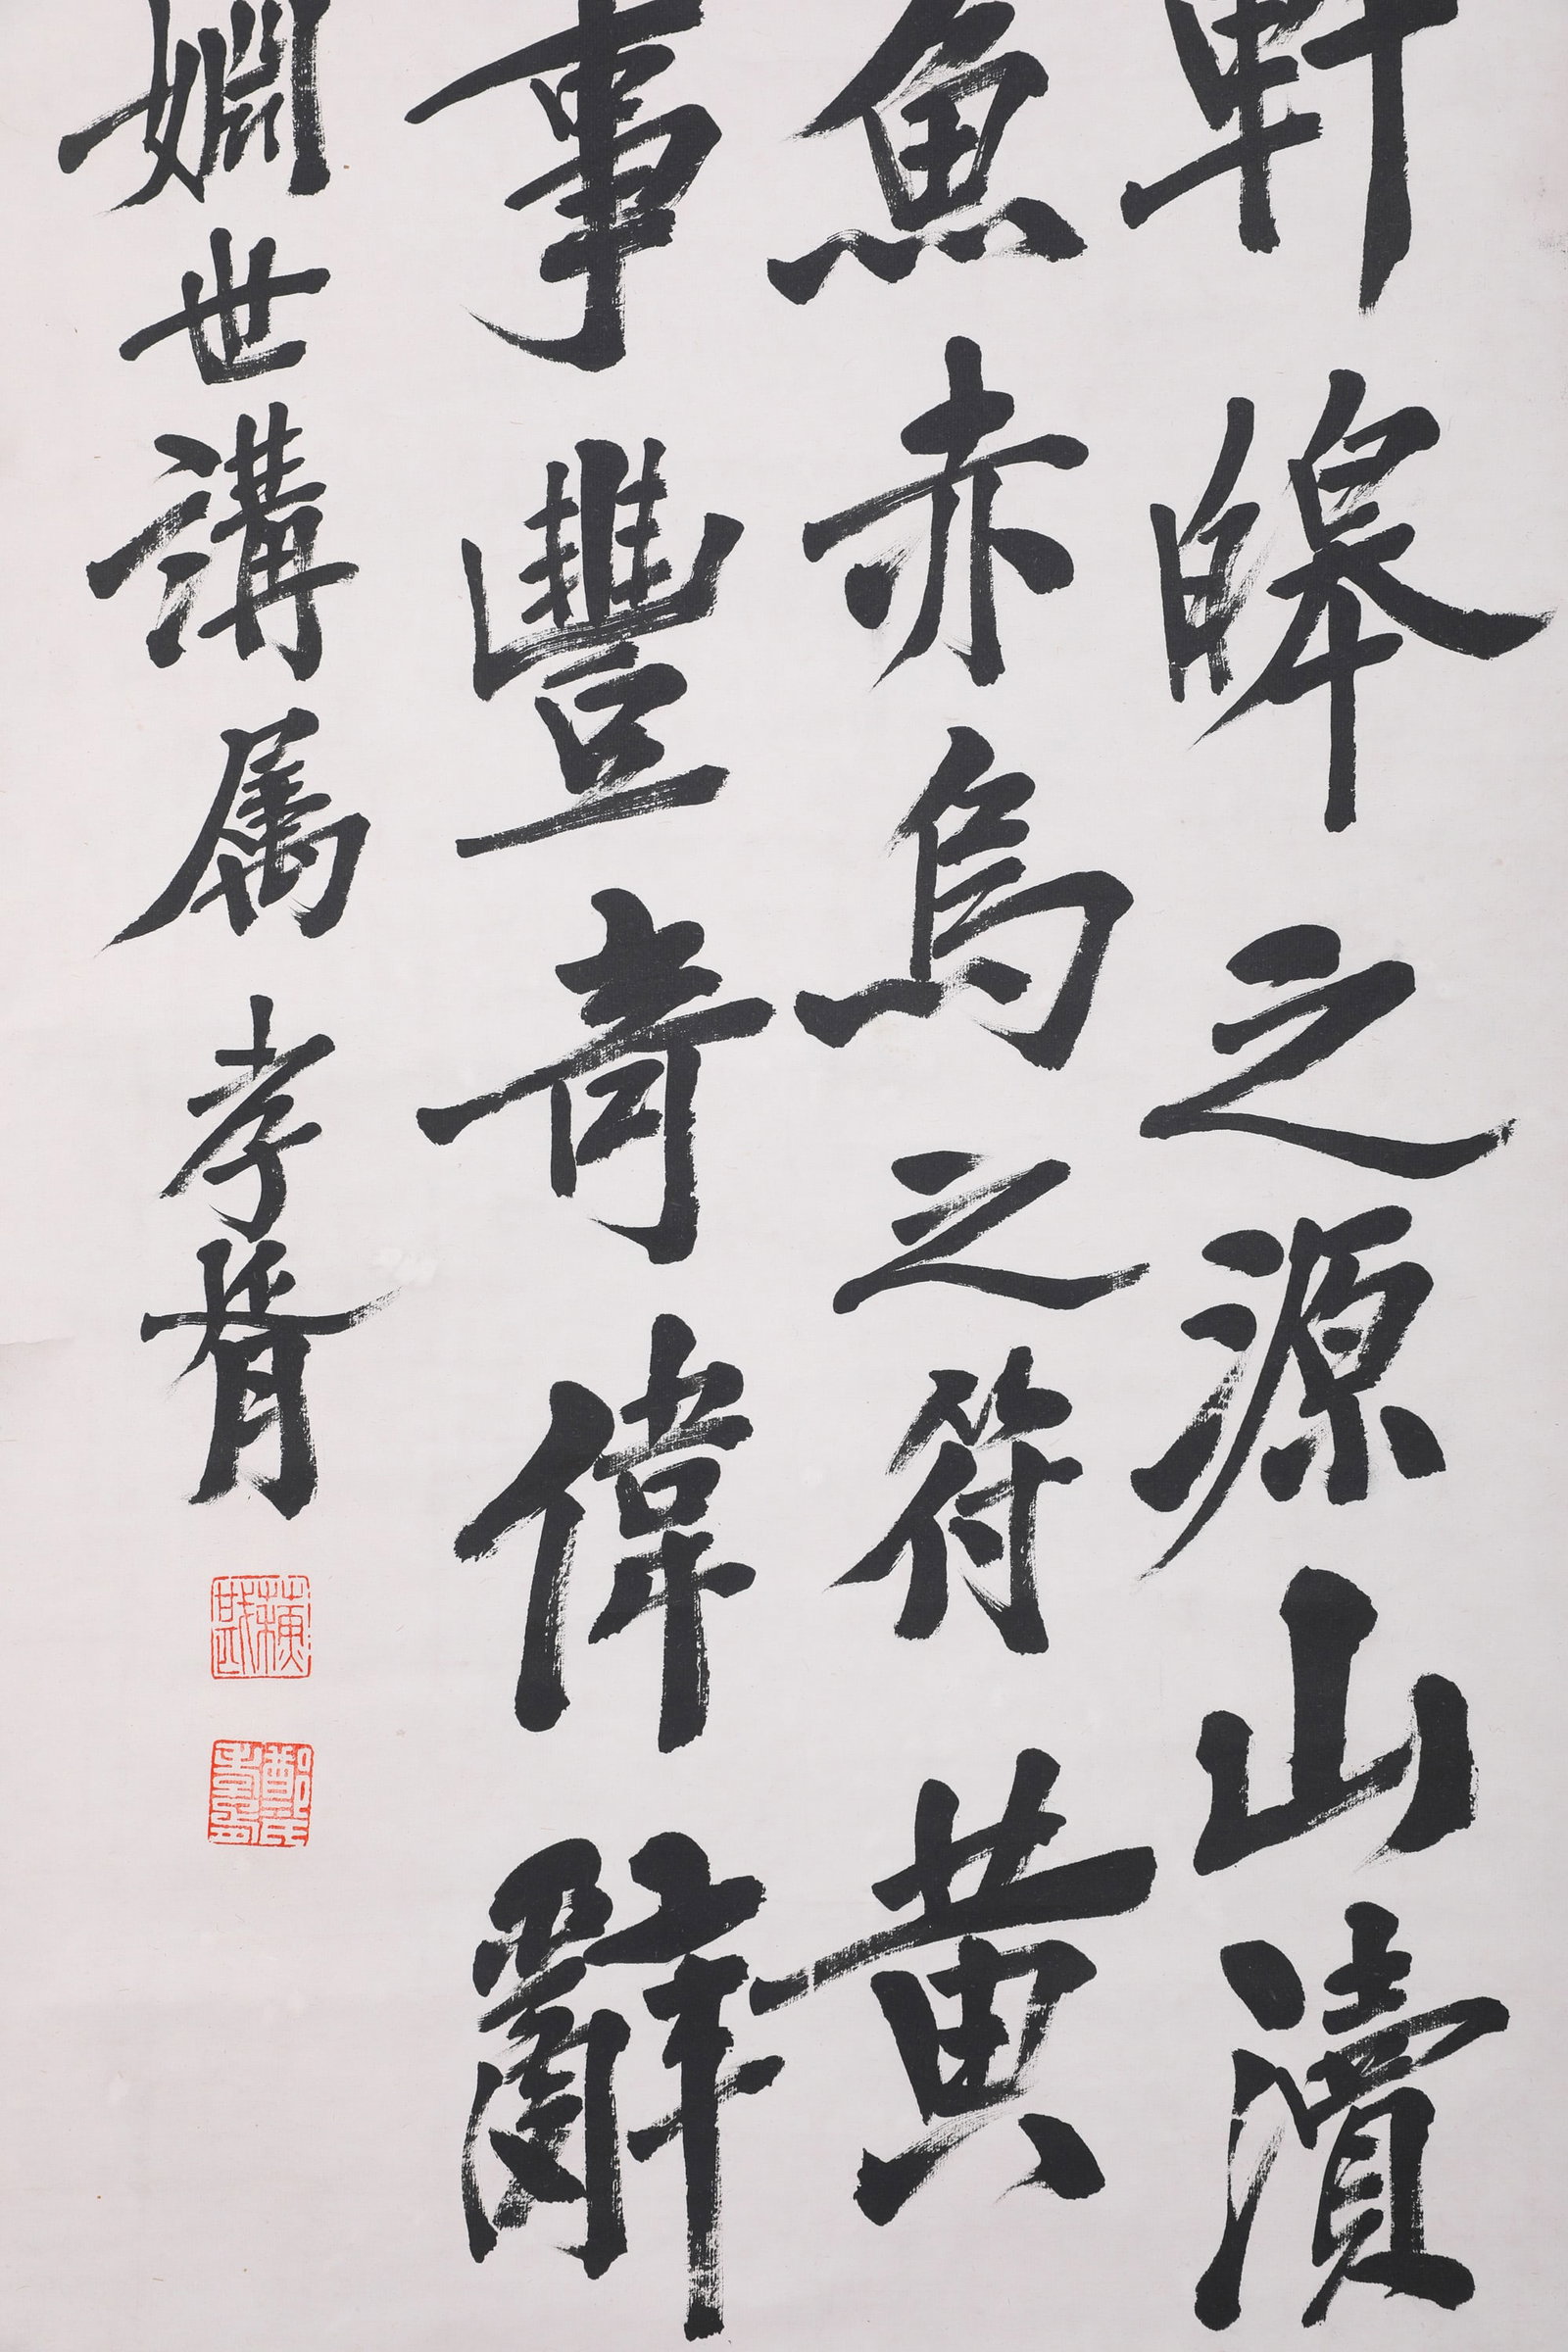 軒皞之源山瀆
魚赤烏之符黃
事豐奇偉辭
嫻世講属 孝胥
蘇戡